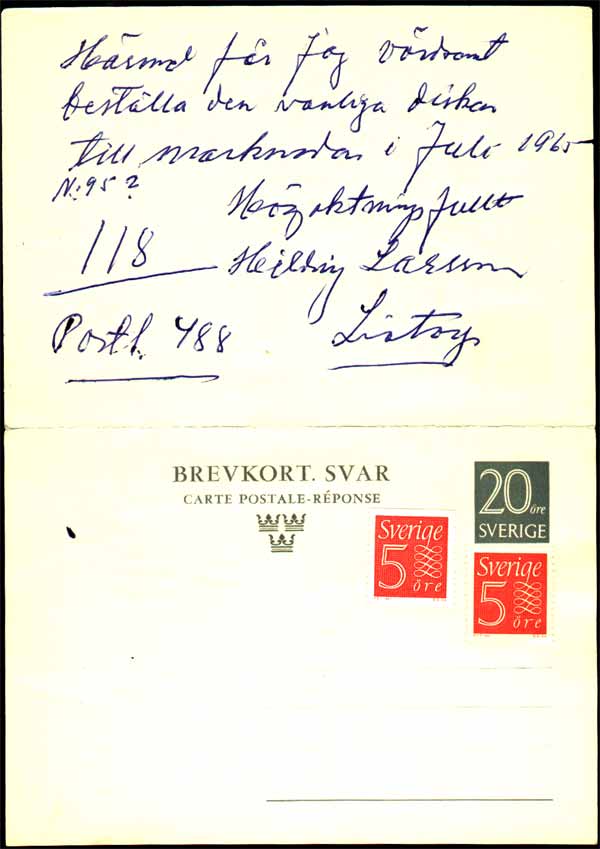 Härmed får jag vördsamt
beställa den vanliga disken
till marknaden i Juli 1965
N: 95 ?
Högaktningsfullt
118
Larsson
Postl. 488
BREVKORT. SVAR
CARTE POSTALE-RÉPONSE
20 öre
SVERIGE
Sverige
5 öre
Sverige
5 öre